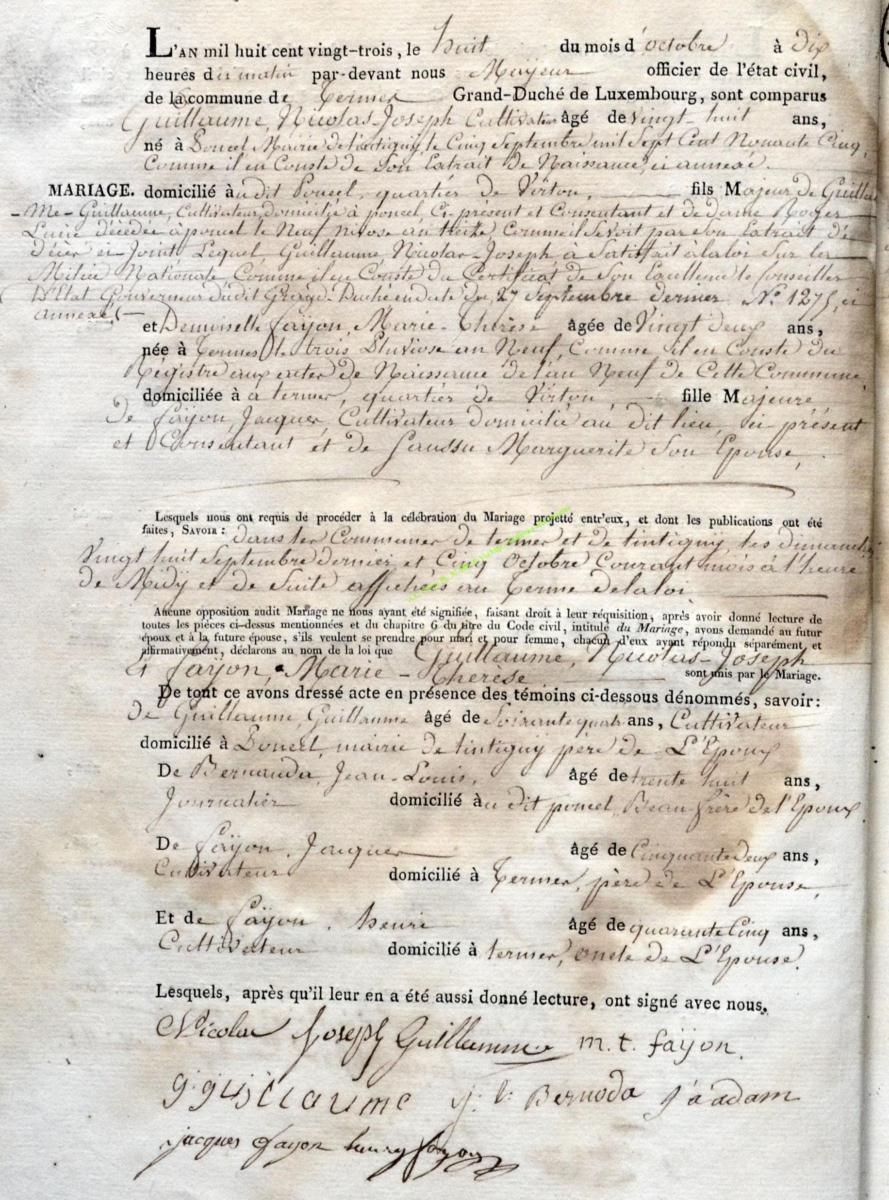 L'AN mil huit cent vingt-trois, le huit du mois d'octobre à Dix
heures du matin par-devant nous Mayeur officier de l'état civil,
de la commune de Termes Grand-Duché de Luxembourg, sont comparus
Guillaume, Nicolas-Joseph Cultivateur âgé de vingt-huit ans,
né à Poncel Mairie de tintigny, le Cinq Septembre mil Sept Cent Nonante Cinq,
Comme il en Conste de Son Extrait de Naissance, ci annexé.
MARIAGE. domicilié à udit Poncel, quartier de Virton, fils Majeur de Guillau
-Me - Guillaume, Cultivateur, domicilié à poncel, Ci présent et Consentant et de dame Roger
décédée à poncel le Neuf nivose an treize Comme il Se voit par Son Extrait de
décès ci-Joint, Lequel, Guillaume, Nicolas-Joseph, à Satisfait à la loi Sur la
Milice Nationale, Comme il en Conste du Certificat de Son Excellence le Conseiller
D'Etat Gouverneur dudit Grand-Duché en date du 27 Septembre dernier N.° 1275, ci
annexé (—
et Demoiselle fayon, Marie-Thérèse âgée de Vingt deux ans,
née à Termes le trois Pluviose an Neuf, Comme il en Conste du
Régistre aux actes de Naissance de l'an Neuf de Cette Commune,
domiciliée à a termes, quartier de Virton, fille Majeure
de fayon, Jacques, Cultivateur domicilié au dit lieu, ci présent
et Consentant et de Marguerite Son Epouse,
Lesquels nous ont requis de procéder à la célébration du Mariage projetté entr'eux, et dont les publications ont été
faites, SAVOIR : dans les Communes de termes et de tintigny, les dimanches
Vingt huit Septembre dernier et Cinq Octobre Courant mois à l'heure
de Midy et de Suite affichés au Terme de la loi.
Aucune opposition audit Mariage ne nous ayant été signifiée, faisant droit à leur réquisition, après avoir donné lecture de
toutes les pièces ci-dessus mentionnées et du chapitre 6 du titre du Code civil, intitulé du Mariage, avons demandé au futur
époux et à la future épouse, s'ils veulent se prendre pour mari et pour femme, chacun d'eux ayant répondu séparément et
affirmativement, déclarons au nom de la loi que Guillaume, Nicolas-Joseph
Et fayon, Marie-Therèse sont unis par le Mariage.
De tout ce avons dressé acte en présence des témoins ci-dessous dénommés, savoir :
De Guillaume, Guillaume âgé de Soixante quatre ans, Cultivateur
domicilié à Poncel, mairie de tintigny père de L'Epoux
De Bernauda, Jean-Louis, âgé de trente huit ans,
Journalier domicilié à u dit poncel, Beau frère de l'Epoux.
De fayon, Jacques âgé de Cinquante deux ans,
Cultivateur domicilié à Termes, père de L'Epouse,
Et de fayon, henri âgé de quarante Cinq ans,
Cultivateur domicilié à termes, oncle de L'Epouse.
Lesquels, après qu'il leur en a été aussi donné lecture, ont signé avec nous.
Nicolas Joseph Guillaume m. t. fayon.
g guillaume j. l. Bernoda j a adam
jacques fayon henry fayon